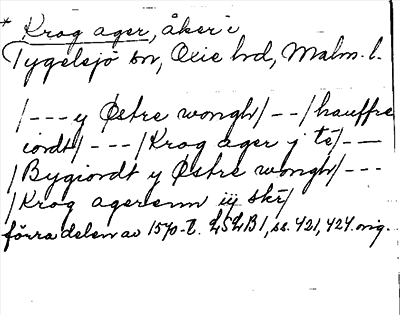 * Krog ager, åker i
Tygelsjö sn, Oxie hd, Malm. l.
/---y Østre wongh/--/hauffre
iordt/---/Krog ager j te/--
/Bygiordt y Østre wongh/---
/Krog agerenn iij skr/
förra delen av 1570-t. LSLB1, ss. 421, 424. orig.